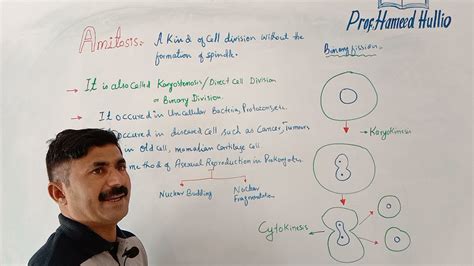 Prof. Hameed Hullio
Amitosis:- A kind of Cell division without the
formation of spindle.
→ It is also Called Karyostenosis/Direct Cell Division
or Binary Division.
→ It occured in Unicellular Bacteria, Protozoans etc.
occured in diseased Cell such as Cancer, Tumours
in Old Cell, mammalian Cartilage Cell
me thod of Asexual Reproduction in Prokaryotes.
Nuclear Budding
Nuclear
Fragmentation
Binary fission:
Karyokinesis
Cytokinesis